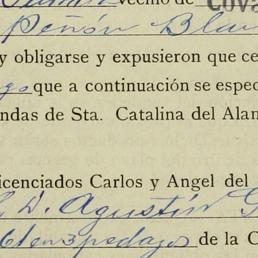 vecino de Cova
Peñón Blan
y obligarse y expusieron que ce
go que a continuación se espec
ndas de Sta. Catalina del Alan
icenciados Carlos y Angel del
D. Agustín G
61 en 3 pedazos de la C